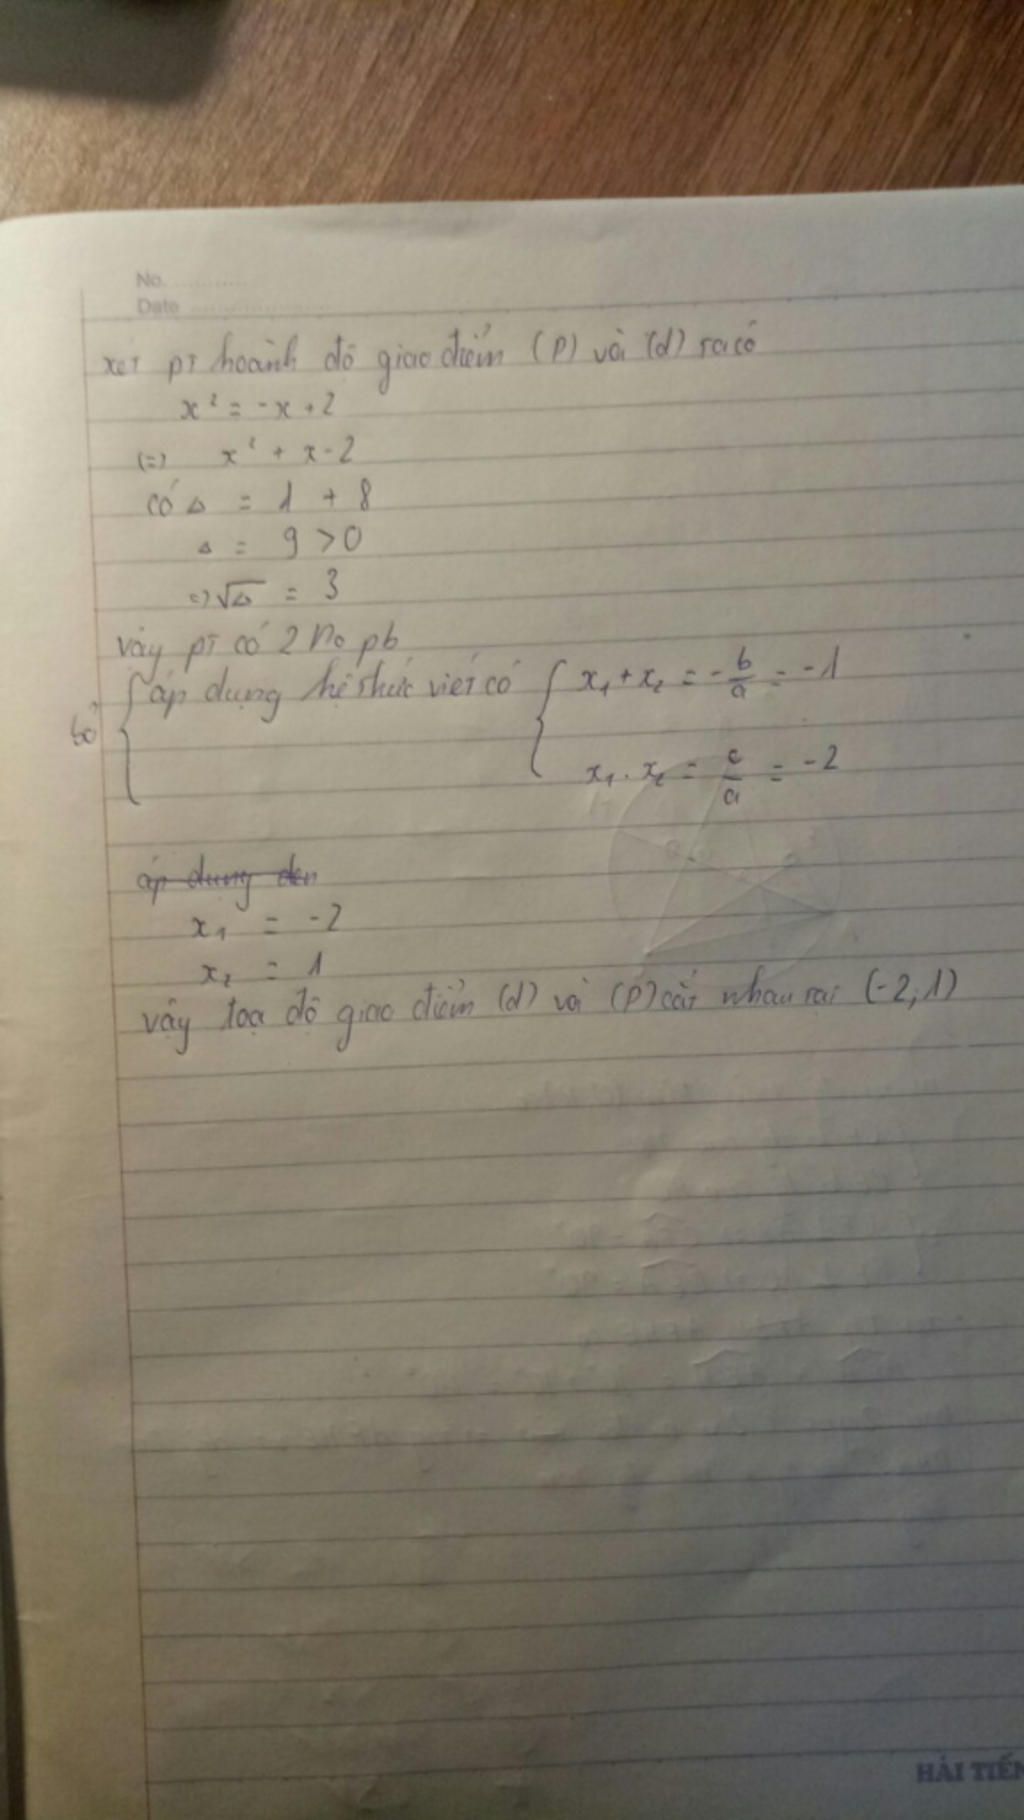 No. ............
Date ....................
xét pt hoành độ giao điểm (P) và (d) ta có
x² = -x + 2
(=) x² + x - 2
có Δ = 1 + 8
Δ = 9 > 0
=) √Δ = 3
vậy pt có 2 no pb
bỏ { áp dụng hệ thức viét có { x₁ + x₂ = - b/a = -1
x₁ . x₂ = c/a = -2
áp dung
x₁ = -2
x₂ = 1
vậy toạ độ giao điểm (d) và (P) cắt nhau tại (-2; 1)
HẢI TIẾN